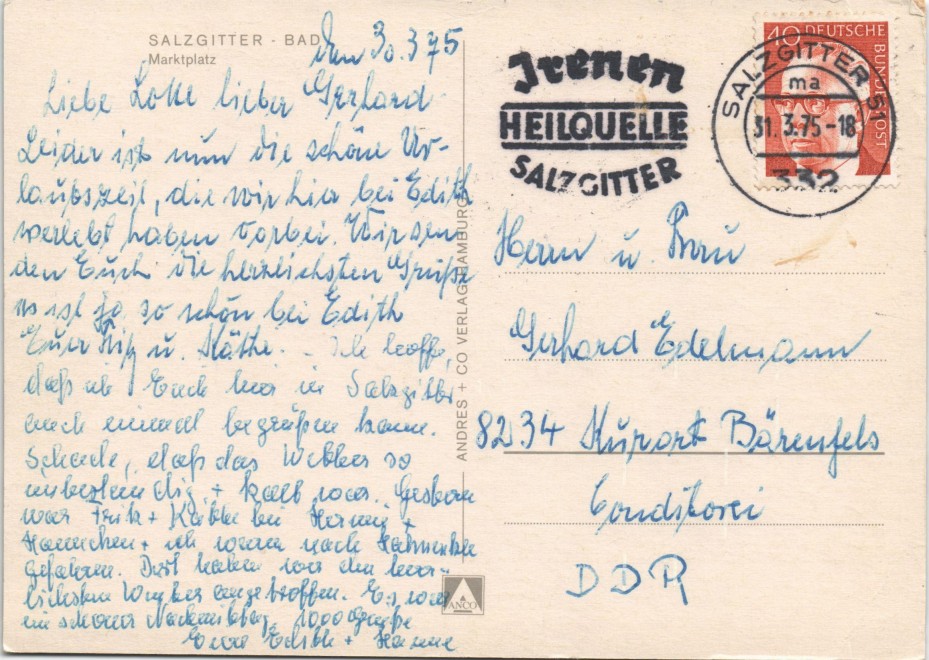 SALZGITTER - BAD
Marktplatz
den 30.3.75
Liebe Lotte lieber Gerhard
Leider ist nun die schöne Ur-
laubszeit, die wir hier bei Edith
verlebt haben vorbei. Wir sen
den Euch die herzlichsten Grüße
es ist ja so schön bei Edith
Euer Fritz u. Käthe. - Ich hoffe,
daß ich Euch hier in Salzgitter
auch einmal begrüßen kann.
Schade, daß das Wetter so
unbeständig + kalt war. Gestern
war Fritz + Käthe bei +
Hannchen + ich waren nach Hahnenklee
gefahren. Dort haben wir den herr-
lichsten Winter angetroffen. Es war
ein schöner Nachmittag. 1000 Grüße
Eure Edith + Hanne
ANDRES + CO VERLAG HAMBURG
ANCO
Irenen
HEILQUELLE
SALZGITTER
SALZGITTER 51
ma
31.3.75-18
332
40 DEUTSCHE BUNDESPOST
Herrn u. Frau
Gerhard Edelmann
8234 Kurort Bärenfels
Conditorei
DDR